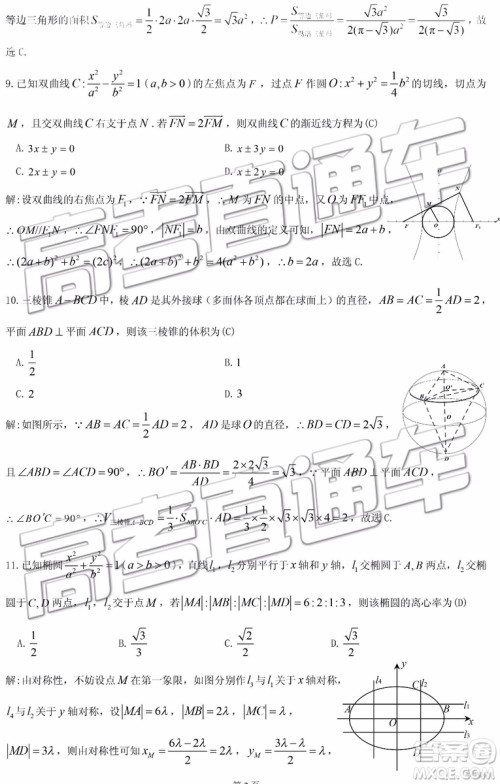 等边三角形的面积S等边三角形=1/2·2a·2a·√3/2=√3a²，∴P=S等边三角形/S勒洛三角形=√3a²/2(π-√3)a²=√3/2(π-√3)，故
选C.
9.已知双曲线C:x²/a²-y²/b²=1(a,b>0)的左焦点为F，过点F作圆O:x²+y²=1/4b²的切线，切点为
M，且交双曲线C右支于点N.若FN=2FM，则双曲线C的渐近线方程为(C)
A.3x±y=0 B.x±3y=0
C.2x±y=0 D.x±2y=0
解:设双曲线的右焦点为F₁，∵FN=2FM，∴M为FN的中点，又O为FF₁中点，
∴OM//F₁N，∴∠FNF₁=90°，|NF₁|=b，由双曲线的定义可知，|FN|=2a+b，
∴(2a+b)²+b²=(2c)²，∴(2a+b)²+b²=4(a²+b²)，∴b=2a，故选C.
10.三棱锥A-BCD中，棱AD是其外接球（多面体各顶点都在球面上）的直径，AB=AC=1/2AD=2，
平面ABD⊥平面ACD，则该三棱锥的体积为(C)
A.1/2 B.1
C.2 D.3
解:如图所示，∵AB=AC=1/2AD=2，AD是球O的直径，∴BD=CD=2√3，
且∠ABD=∠ACD=90°，∴BO′=AB·BD/AD=2×2√3/4=√3，∵平面ABD⊥平面ACD，
∴∠BO′C=90°，∴V三棱锥A-BCD=1/3·S△BO′C·AD=1/3×1/2×√3×√3×4=2，故选C.
11.已知椭圆x²/a²+y²/b²=1(a>b>0)，直线l₁，l₂分别平行于x轴和y轴，l₁交椭圆于A,B两点，l₂交椭
圆于C,D两点，l₁，l₂交于点M，若|MA|:|MB|:|MC|:|MD|=6:2:1:3，则该椭圆的离心率为(D)
A.1/2 B.√3/3 C.√2/2 D.√3/2
解:由对称性，不妨设点M在第一象限，如图分别作l₃与l₁关于x轴对称，
l₄与l₂关于y轴对称，设|MA|=6λ，|MB|=2λ，|MC|=λ，
|MD|=3λ，则由对称性可知x_M=6λ-2λ/2，y_M=3λ-λ/2，
高考直通车